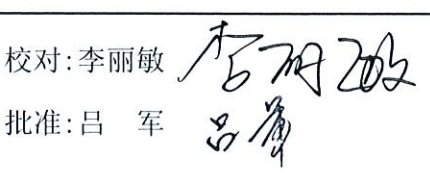 校对:李丽敏 李丽敏
批准:吕　军 吕军